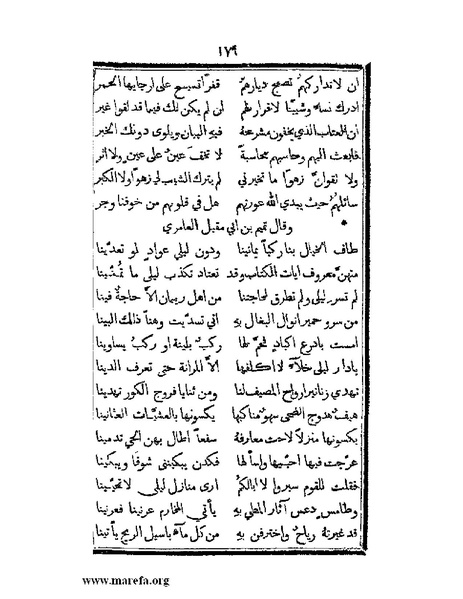 ١٧٩
ان لا تداركهم تصبح ديارهم قفرًا تسبح على ارجايها الحمر
ادرك نسآء وشيبًا لا قرار لهم ان لم يكن لك فيما قد لقوا غير
ان العتاب الذي يخفون مشرحة فيه البيان ويلوى دونك الخبر
فابعث اليهم وحاسبهم محاسبةً لا تخف عين على عين ولا اثر
ولا تقولن زهوًا ما تخبرني لم يترك الشيب لي زهوًا ولا الكبر
سائلهم حيث يبدي الله عورتهم هل في قلوبهم من خوفنا وجر
وقال تميم بن ابي مقبل العامري
طاف الخيال بنا ركبًا يمانينا ودون ليلى عوادٍ لو تعدينا
منهن معروف ايات الكتاب وقد تعتاد تكذب ليلى ما تمنينا
لم تسر ليلى ولم تطرق لحاجتنا من اهل ريمان الّا حاجةً فينا
من سرو حمير ابوال البغال بهِ اني تسديت وهنًا ذالك البينا
امست باذرع اكبادٍ فحم لها ركبٌ بلينة او ركبٌ يساوينا
يادار ليلى خلآءً لا اكلفها الّا المرانة حتى تعرف الدينا
تهدي زنانير ارواح المصيف لنا ومن ثنايا فروج الكور تهدينا
هيف هدوج الضحى سهوٌ مناكبها يكسونها بالعشيات العثانينا
يكسونها منزلًا لاحت معارفهُ سفعًا اطال بهن الحي تدمينا
عرجت فيها احييها واسألها فكدن يبكينني شوقًا ويبكينا
فقلت للقوم سيروا لا ابالكم ارى منازل ليلى لا تحيينا
وطامس دعس آثار المطي بهِ يأتي المخارم عرنينا فعرنينا
قد غيرتهُ رياحٌ واخترقن بهِ من كل مآء باسيل الريح يأتينا
www.marefa.org